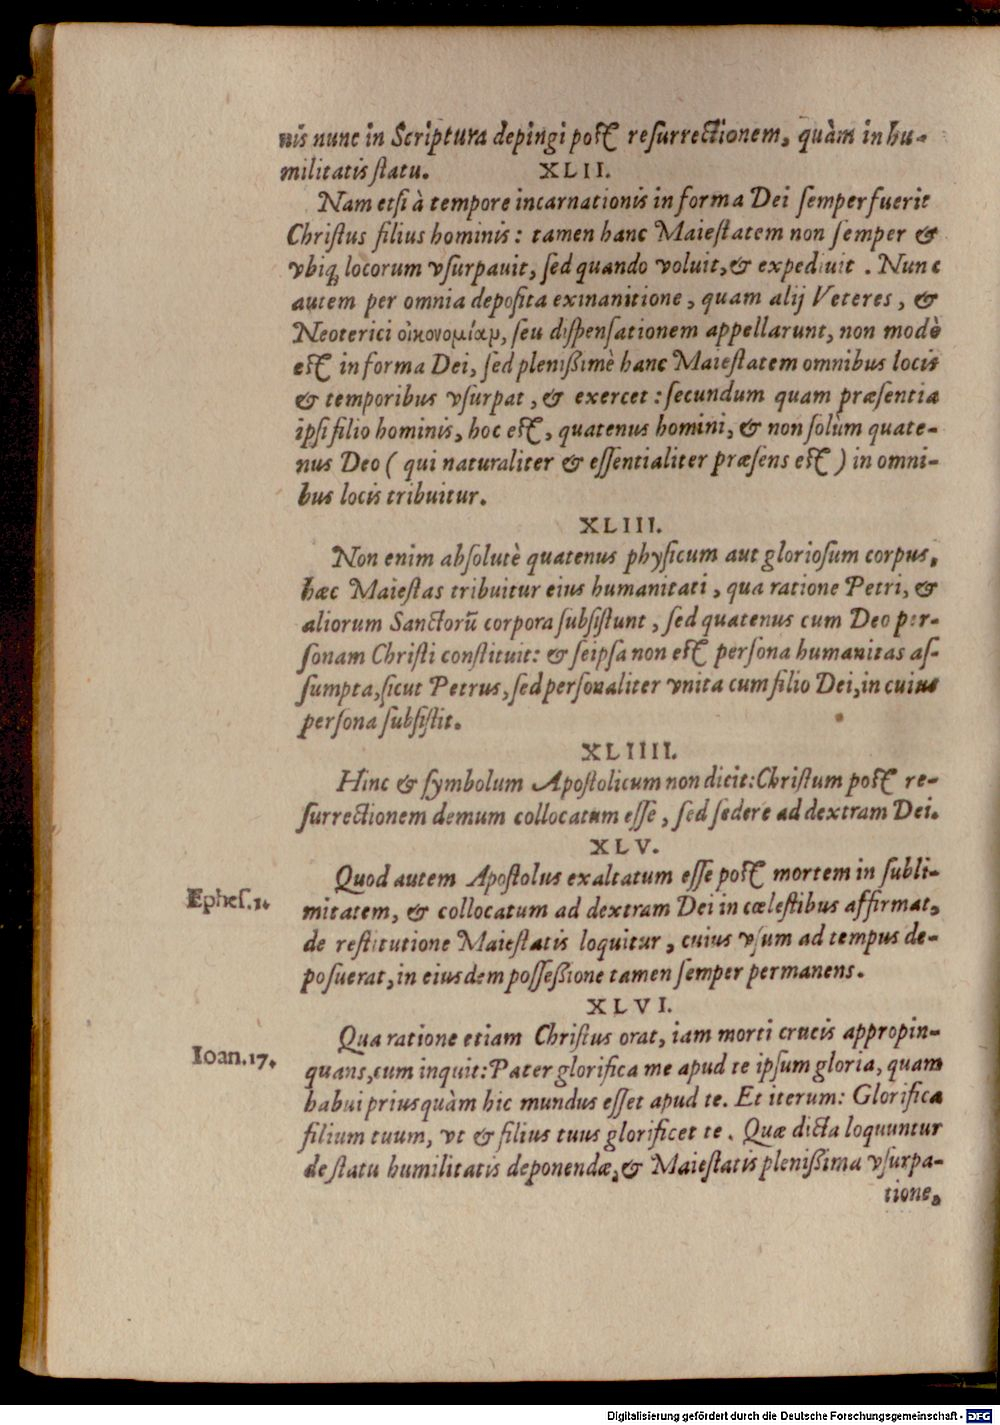 nis nunc in Scriptura depingi post resurrectionem, quàm in hu-
militatis statu.
XLII.
Nam etsi à tempore incarnationis in forma Dei semper fuerit
Christus filius hominis: tamen hanc Maiestatem non semper &
vbiq; locorum vsurpauit, sed quando voluit, & expediuit. Nunc
autem per omnia deposita exinanitione, quam alij Veteres, &
Neoterici οἰκονομίαμ, seu dispensationem appellarunt, non modò
est in forma Dei, sed plenißimè hanc Maiestatem omnibus locis
& temporibus vsurpat, & exercet: secundum quam præsentia
ipsi filio hominis, hoc est, quatenus homini, & non solùm quate-
nus Deo ( qui naturaliter & essentialiter præsens est ) in omni-
bus locis tribuitur.
XLIII.
Non enim absolutè quatenus physicum aut gloriosum corpus,
hæc Maiestas tribuitur eius humanitati, qua ratione Petri, &
aliorum Sanctorū corpora subsistunt, sed quatenus cum Deo per-
sonam Christi constituit: & seipsa non est persona humanitas as-
sumpta, sicut Petrus, sed personaliter vnita cum filio Dei, in cuius
persona subsistit.
XLIIII.
Hinc & symbolum Apostolicum non dicit: Christum post re-
surrectionem demum collocatum esse, sed sedere ad dextram Dei.
XLV.
Quod autem Apostolus exaltatum esse post mortem in subli-
Ephes. 1.
mitatem, & collocatum ad dextram Dei in cœlestibus affirmat,
de restitutione Maiestatis loquitur, cuius vsum ad tempus de-
posuerat, in eiusdem posseßione tamen semper permanens.
XLVI.
Qua ratione etiam Christus orat, iam morti crucis appropin-
Ioan. 17.
quans, cum inquit: Pater glorifica me apud te ipsum gloria, quam
habui priusquàm hic mundus esset apud te. Et iterum: Glorifica
filium tuum, vt & filius tuus glorificet te. Quæ dicta loquuntur
de statu humilitatis deponendæ, & Maiestatis plenißima vsurpa-
tione,
Digitalisierung gefördert durch die Deutsche Forschungsgemeinschaft - DFG